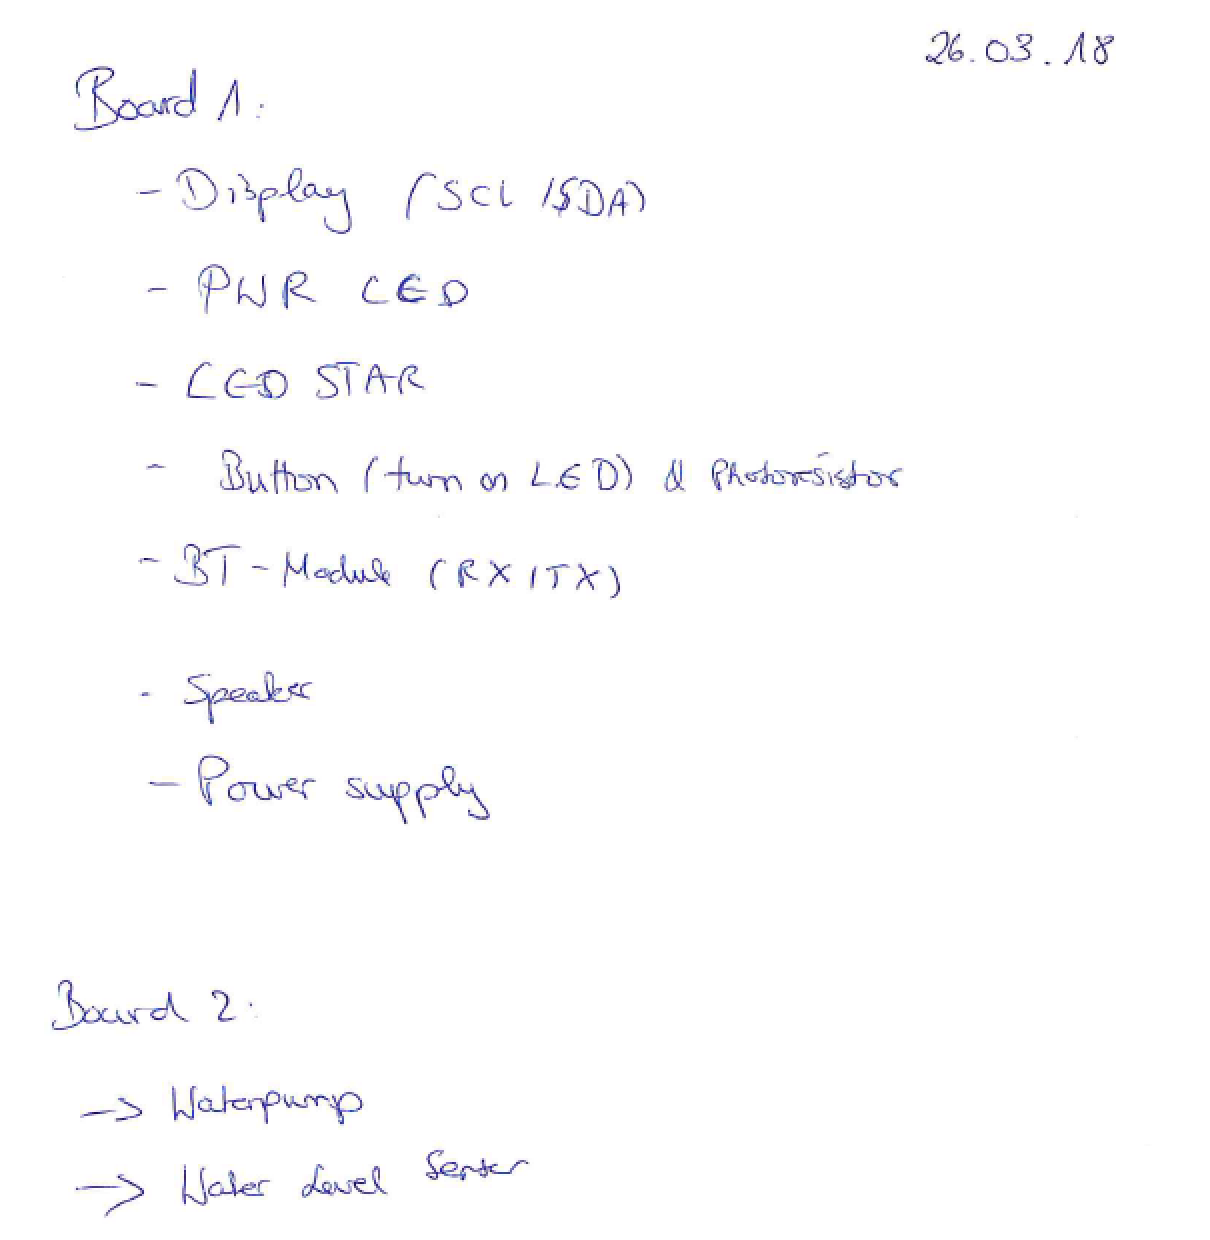 26.03.18
Board 1:
- Display (SCL/SDA)
- PWR LED
- LED STAR
- Button (turn on LED) & Photoresistor
- BT-Module (RX/TX)
- Speaker
- Power supply
Board 2:
-> Waterpump
-> Water Level Sensor